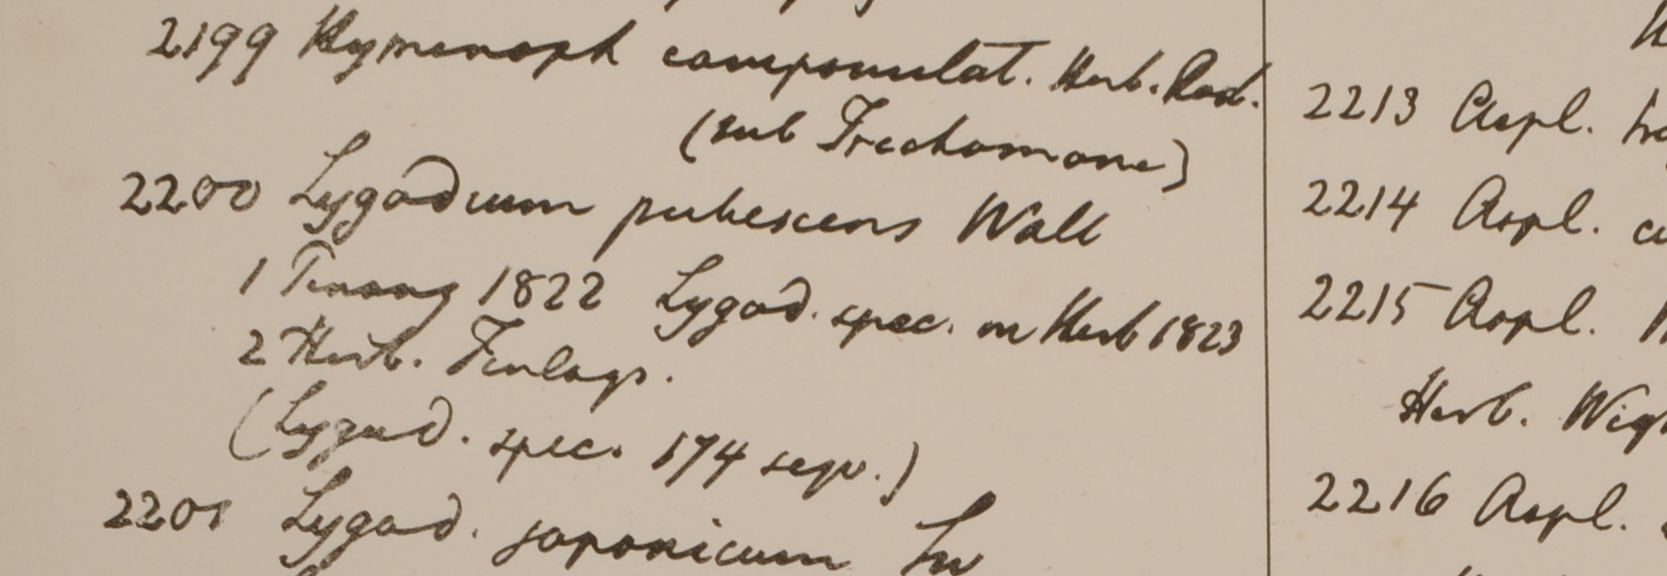 2199 Hymenoph campanulat. Herb. Rad.
(sub Trechomane)
2200 Lygodium pubescens Wall
1 Penang 1822 Lygod. spec. in Herb 1823
2 Herb. Finlays.
(Lygod. spec. 174 seqv.)
2201 Lygod. japonicum Sw
2213 Aspl.
2214 Aspl.
2215 Aspl.
Herb. Wigh
2216 Aspl.